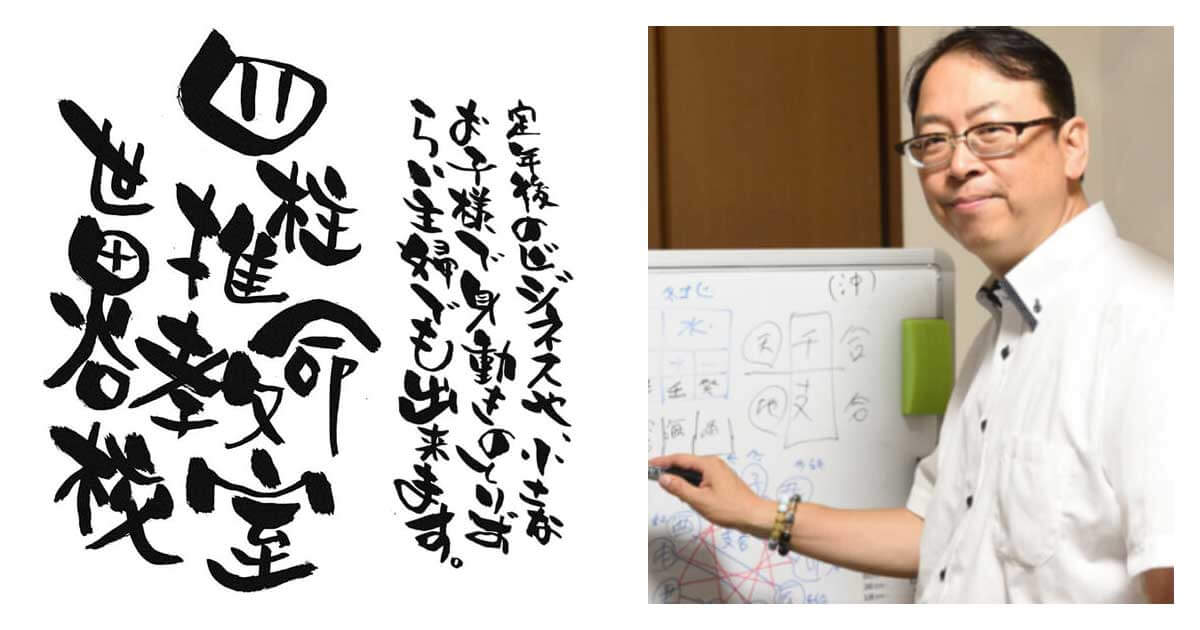 四柱推命教室
世田谷校
定年後のビジネスや、小さな
お子様で身動きのとりづ
らい主婦でも出来ます。
(冲)
水
天 干 合
壬 癸
地 支 合
酉
支合